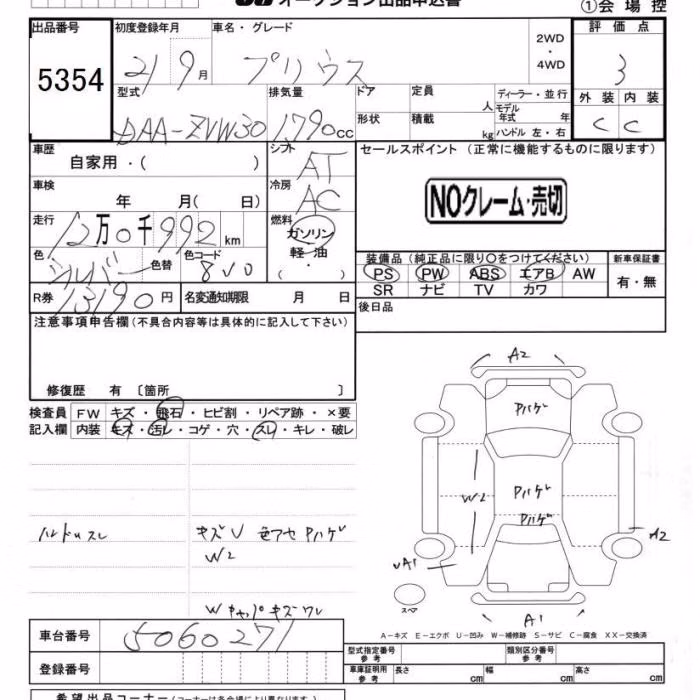 オークション出品申込書
①会場控
出品番号
5354
初度登録年月
21 9月
車名・グレード
プリウス
2WD
・
4WD
評価点
3
外装 内装
C C
型式
DAA-ZVW30
排気量
1790cc
ドア
定員
人
形状
積載
kg
ディーラー・並行
モデル年式 年
ハンドル 左・右
車歴
自家用・( )
シフト
AT
車検
年 月( 日)
冷房
AC
走行
12万0千992km
燃料
ガソリン
軽油
・( )
色
シルバー
色替
色コード
8V0
R券
13190円
名変通知期限 月 日
セールスポイント (正常に機能するものに限ります)
NOクレーム・売切
装備品(純正品に限り○をつけてください)
PS PW ABS エアB AW
SR ナビ TV カワ
新車保証書
有・無
後日品
注意事項申告欄(不具合内容等は具体的に記入して下さい)
修復歴 有 〔箇所 〕
検査員
記入欄
FW キズ・飛石・ヒビ割・リペア跡・×要
内装 キズ・汚レ・コゲ・穴・スレ・キレ・破レ
ハンドルスレ
キズU 色アセ Pハゲ
W2
Wキャップキズワレ
A2
Pハゲ
W2
Pハゲ
Pハゲ
A2
UA1
スペア
A1
A-キズ E-エクボ U-凹み W-補修跡 S-サビ C-腐食 XX-交換済
車台番号
5060271
登録番号
型式指定番号
参考
類別区分番号
参考
車庫証明用
参考
長さ cm
幅 cm
高さ cm
希望出品コーナー(コーナーは各会場により異なります)